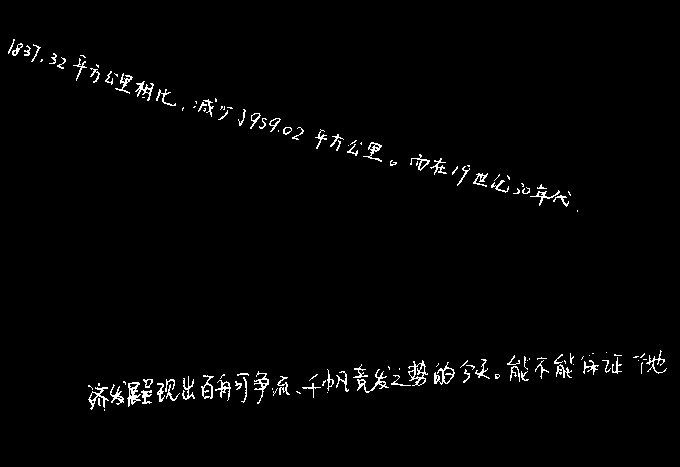 1837.32平方公里相比,减少了959.02平方公里。而在19世纪30年代,
济发展呈现出百舸争流、千帆竞发之势的今天。能不能保证地